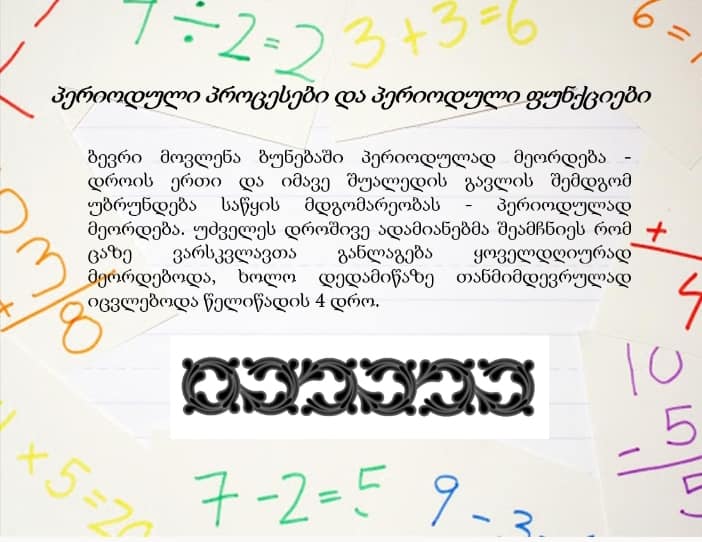 7÷2=2 3+3=6 6=
პერიოდული პროცესები და პერიოდული ფუნქციები
ბევრი მოვლენა ბუნებაში პერიოდულად მეორდება -
დროის ერთი და იმავე შუალედის გავლის შემდგომ
უბრუნდება საწყის მდგომარეობას - პერიოდულად
მეორდება. უძველეს დროშივე ადამიანებმა შეამჩნიეს რომ
ცაზე ვარსკვლავთა განლაგება ყოველდღიურად
მეორდებოდა, ხოლო დედამიწაზე თანმიმდევრულად
იცვლებოდა წელიწადის 4 დრო.
+
4
3
8
10
- 5
5
+5=20
7-2=5
9-3